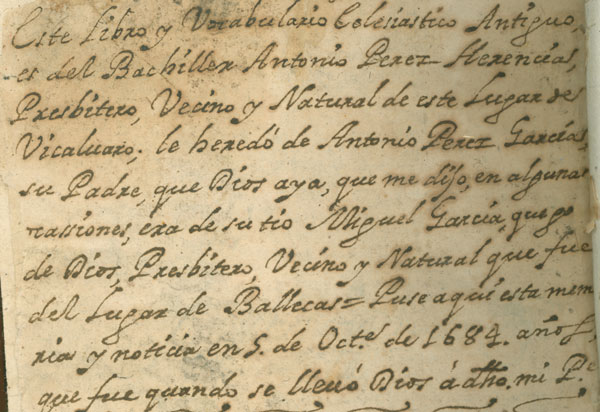 Este Libro y Vocabulario Eclesiastico Antiguo,
es del Bachiller Antonio Perez Herencias,
Presbitero, Vecino y Natural de este Lugar de
Vicaluaro; le heredó de Antonio Perez Garcias,
su Padre, que Dios aya, que me dijo, en algunas
cassiones, era de su tio Miguel Garcia, que go
de Dios, Presbitero, Vecino y Natural que fue
del Lugar de Ballecas = Puse aqui esta mem
rias y noticia en 5. de Oct.e de 1684. años,
que fue quando se llevó Dios á dho. mi P.e